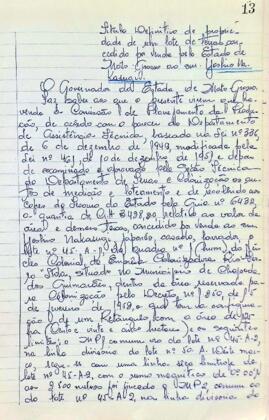 13
Título Definitivo de proprie
dade de um lote de terras con
cedido por venda pelo Estado de
Mato Grosso ao snr. Yoshio Na
kasugui.
O Governador do Estado de Mato Grosso,
Faz saber aos que o presente virem que ha
vendo a Comissão de Planejamento da Produ
ção, de acordo com o parecer do Departamento
de Assistência Técnica, baseado na Lei nº 336,
de 6 de dezembro de 1949, modificada pela
Lei nº 461, de 10 de dezembro de 1951 e depois
de examinado e aprovado pela Seção Técnica
do Departamento de Terras e Colonização os
de medição e loteamento e de recolhido aos
cofres do Estado pela Guia nº 6432,
a quantia de Cr$ 8428,80, relativo ao valor da
área e demais taxas, concedido por venda ao snr.
Yoshio Nakasugui, japonês, casado, lavrador, o
lote nº 45-A-2 da Quadra nº 1 (hum) do Nú
cleo Colonial da Empresa Colonizadora Rio Fer
ro Ltda, situado no Município de Chapada
dos Guimarães, dentro da área reservada para
Colonização pelo Decreto nº de de
de 19 , o qual tem a configura
ção de um Retângulo, com a área de
(Cento e vinte e oito hectares) e os seguintes
limites: o MP1 comum ao do lote nº 45-A-1,
na linha divisória do lote nº 50-A. Deste mar
co, segue-se com uma linha, seus limites do
lote nº 45-A-2, com o rumo magnético de
aos 2500 metros foi fincado o MP2, comum ao
do lote nº 45-A-2, na linha divisória do